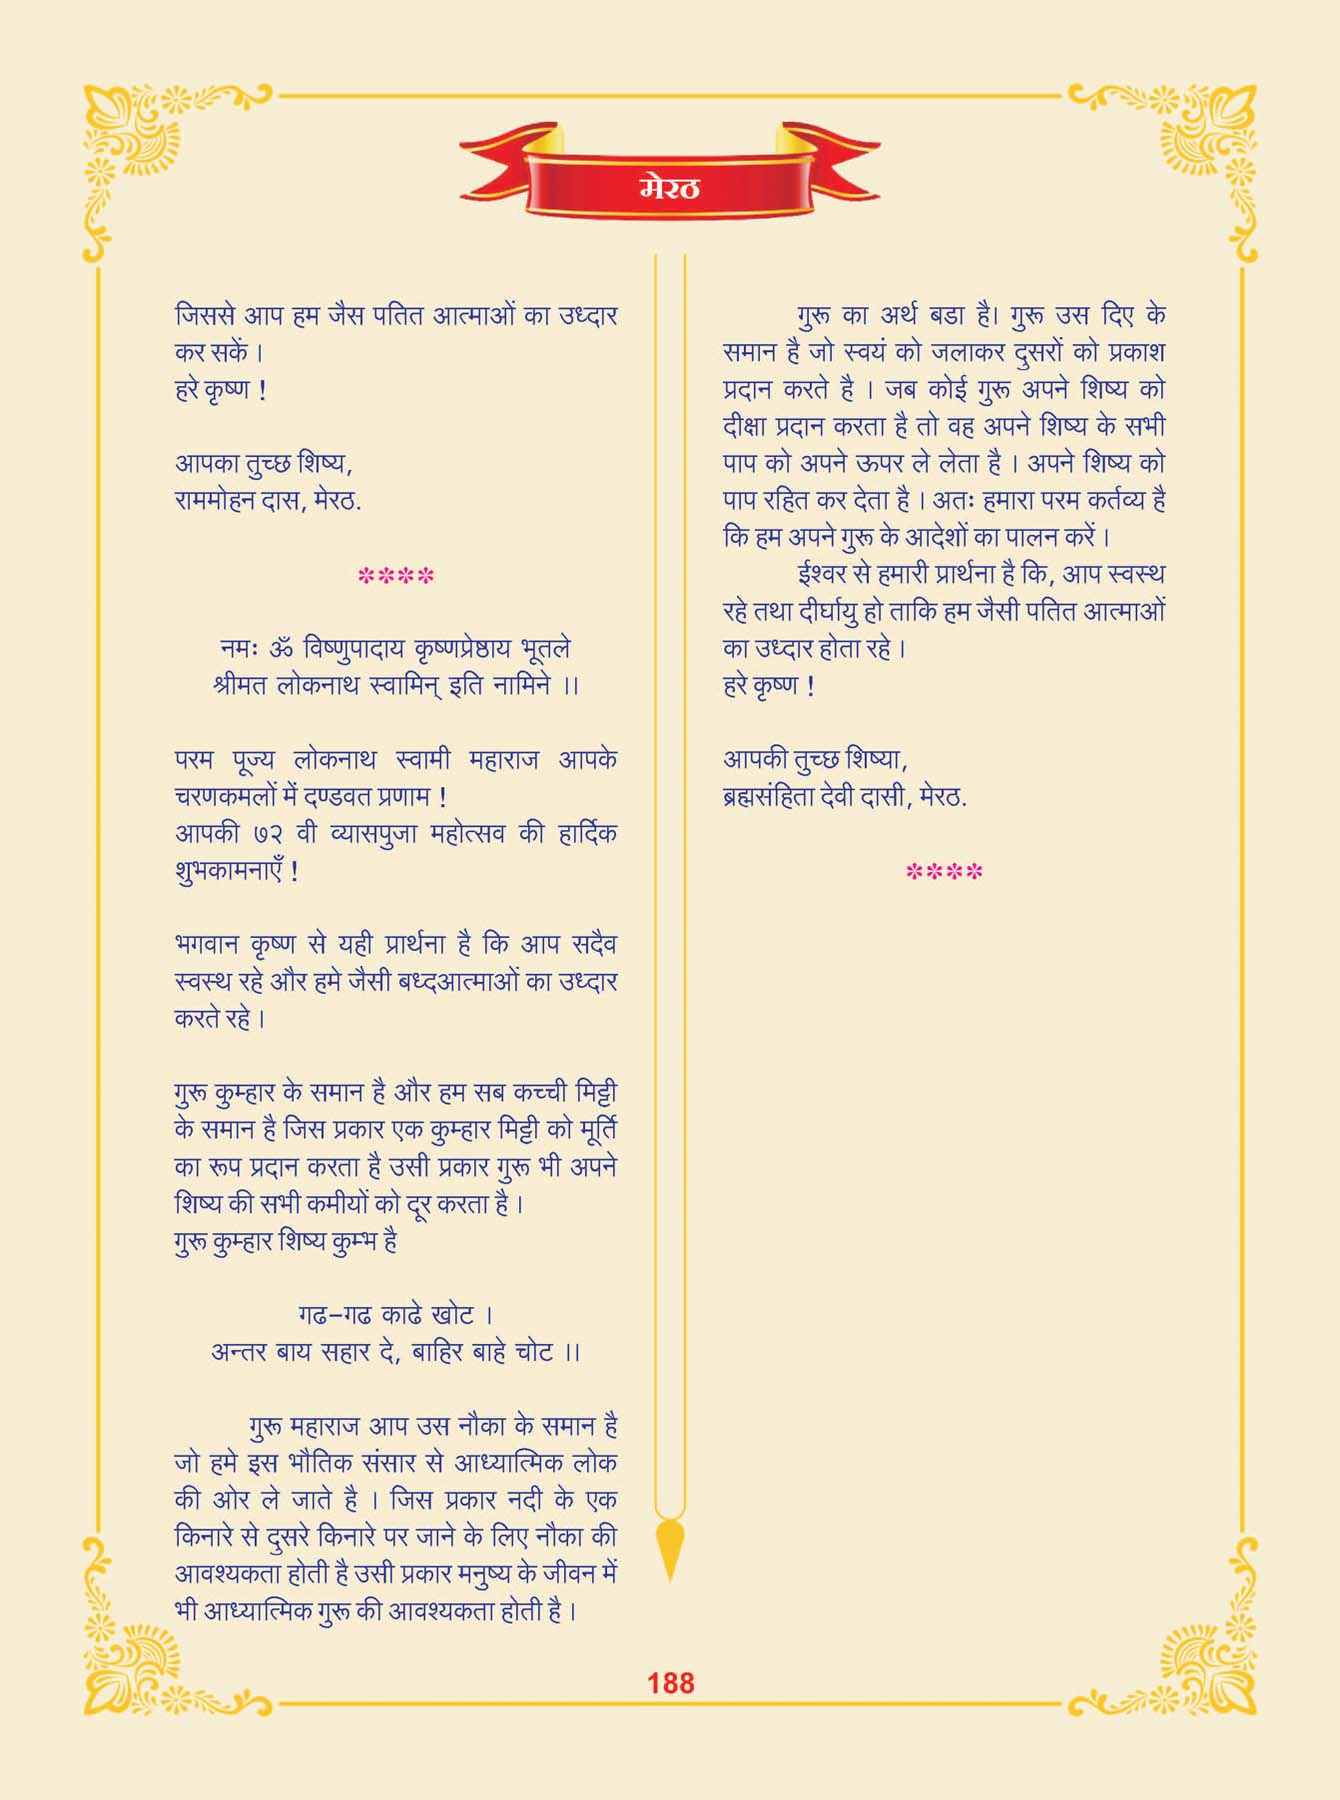 मेरठ
जिससे आप हम जैस पतित आत्माओं का उध्दार
कर सकें ।
हरे कृष्ण !
आपका तुच्छ शिष्य,
राममोहन दास, मेरठ.
****
नमः ॐ विष्णुपादाय कृष्णप्रेष्ठाय भूतले
श्रीमत लोकनाथ स्वामिन् इति नामिने ।।
परम पूज्य लोकनाथ स्वामी महाराज आपके
चरणकमलों में दण्डवत प्रणाम !
आपकी ७२ वी व्यासपुजा महोत्सव की हार्दिक
शुभकामनाएँ !
भगवान कृष्ण से यही प्रार्थना है कि आप सदैव
स्वस्थ रहे और हमे जैसी बध्दआत्माओं का उध्दार
करते रहे ।
गुरू कुम्हार के समान है और हम सब कच्ची मिट्टी
के समान है जिस प्रकार एक कुम्हार मिट्टी को मूर्ति
का रूप प्रदान करता है उसी प्रकार गुरू भी अपने
शिष्य की सभी कमीयों को दूर करता है ।
गुरू कुम्हार शिष्य कुम्भ है
गढ-गढ काढे खोट ।
अन्तर बाय सहार दे, बाहिर बाहे चोट ।।
गुरू महाराज आप उस नौका के समान है
जो हमे इस भौतिक संसार से आध्यात्मिक लोक
की ओर ले जाते है । जिस प्रकार नदी के एक
किनारे से दुसरे किनारे पर जाने के लिए नौका की
आवश्यकता होती है उसी प्रकार मनुष्य के जीवन में
भी आध्यात्मिक गुरू की आवश्यकता होती है ।
गुरू का अर्थ बडा है। गुरू उस दिए के
समान है जो स्वयं को जलाकर दुसरों को प्रकाश
प्रदान करते है । जब कोई गुरू अपने शिष्य को
दीक्षा प्रदान करता है तो वह अपने शिष्य के सभी
पाप को अपने ऊपर ले लेता है । अपने शिष्य को
पाप रहित कर देता है । अतः हमारा परम कर्तव्य है
कि हम अपने गुरू के आदेशों का पालन करें ।
ईश्वर से हमारी प्रार्थना है कि, आप स्वस्थ
रहे तथा दीर्घायु हो ताकि हम जैसी पतित आत्माओं
का उध्दार होता रहे ।
हरे कृष्ण !
आपकी तुच्छ शिष्या,
ब्रह्मसंहिता देवी दासी, मेरठ.
****
188